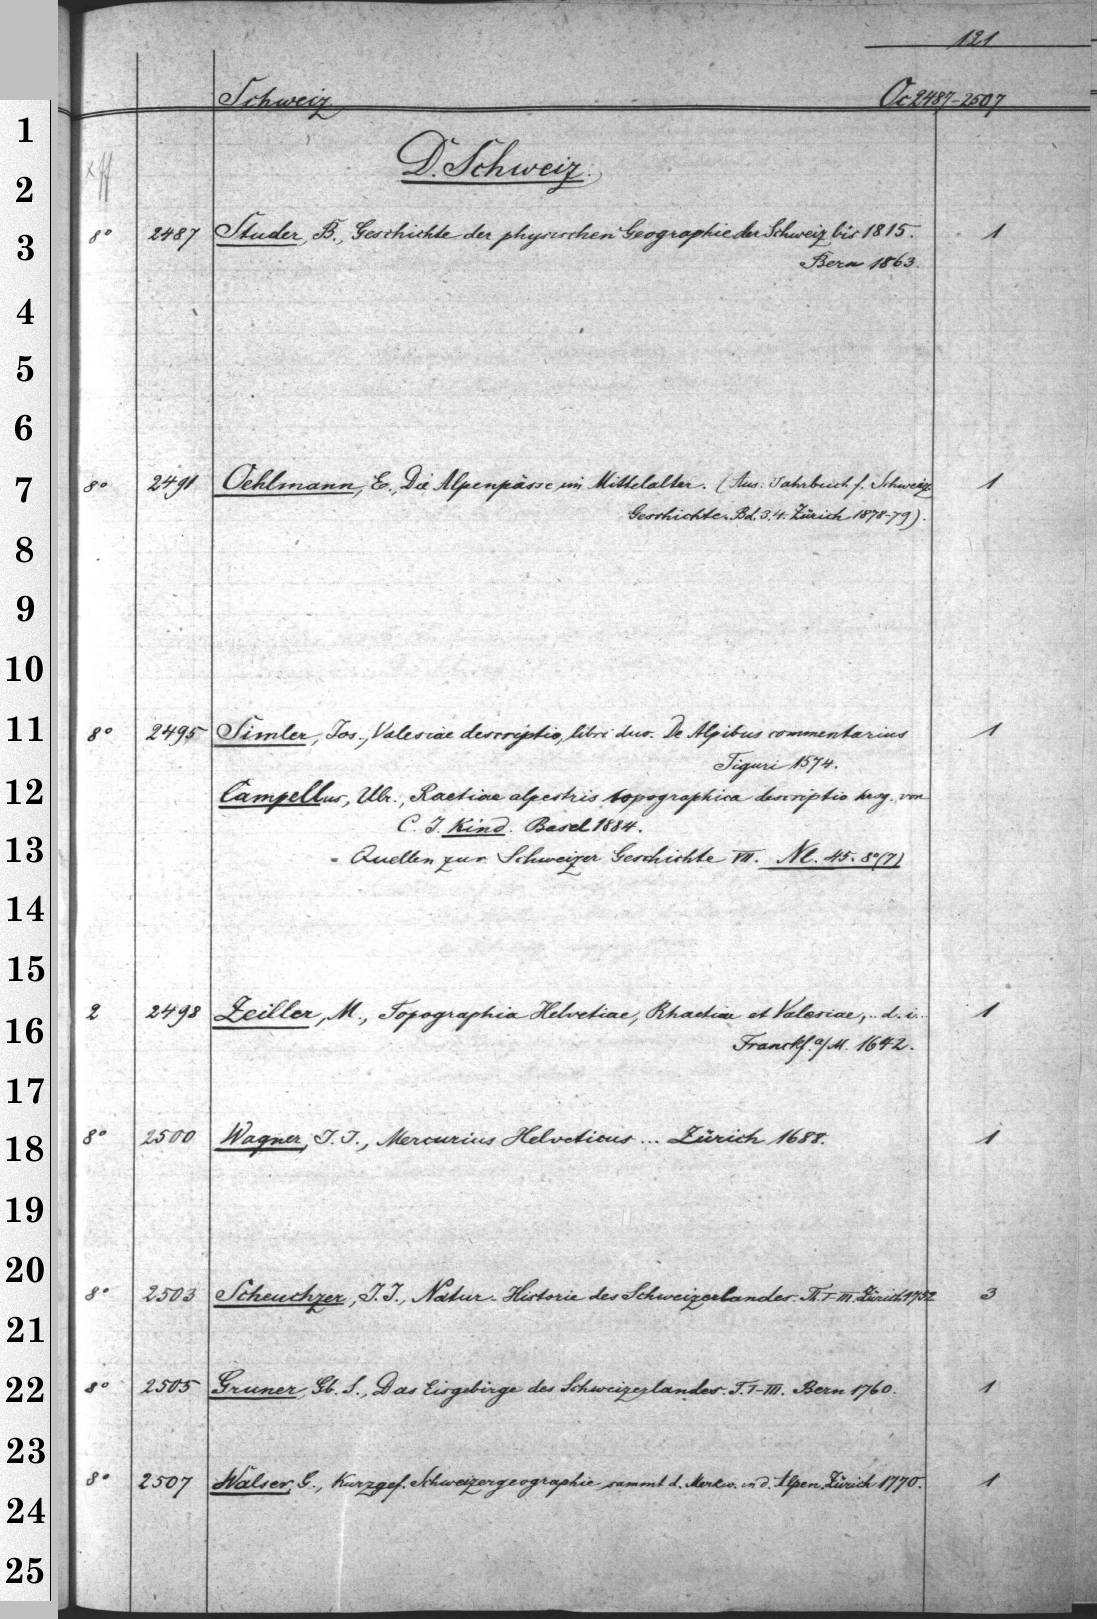 121
Schweiz Oc 2487-2507
D. Schweiz.
8° 2487 Studer, B., Geschichte der physischen Geographie der Schweiz bis 1815. 1
Bern 1863.
8° 2491 Oehlmann, E., Die Alpenpässe im Mittelalter. (Aus: Jahrbuch f. Schweiz.
1
Geschichte. Bd. 3.4. Zürich 1878-79).
8° 2495 Simler, Jos., Valesiae descriptio, libri duo. De Alpibus commentarius 1
Tiguri 1574.
Campellus, Ulr., Raetiae alpestris topographica descriptio hrsg. von
C. J. Kind. Basel 1884.
= Quellen zur Schweizer Geschichte VII. Nl. 45. 8°(7)
2 2498 Zeiller, M., Topographia Helvetiae, Rhaetiae et Valesiae, .. d. i. .. 1
Franckf. a/M. 1642.
8° 2500 Wagner, J. J., Mercurius Helveticus ... Zürich 1688. 1
8° 2503 Scheuchzer, J. J., Natur-Historie des Schweizerlandes. Th. I-III. Zürich 1752 3
8° 2505 Gruner, Gb. S., Das Eisgebirge des Schweizerlandes. T. I-III. Bern 1760. 1
8° 2507 Walser, G., Kurzgef. Schweizergeographie sammt d. Merkw. in d. Alpen. Zürich 1770. 1
1
2
3
4
5
6
7
8
9
10
11
12
13
14
15
16
17
18
19
20
21
22
23
24
25